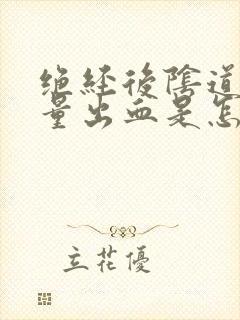 绝经後陰道
量出血是怎
立花優